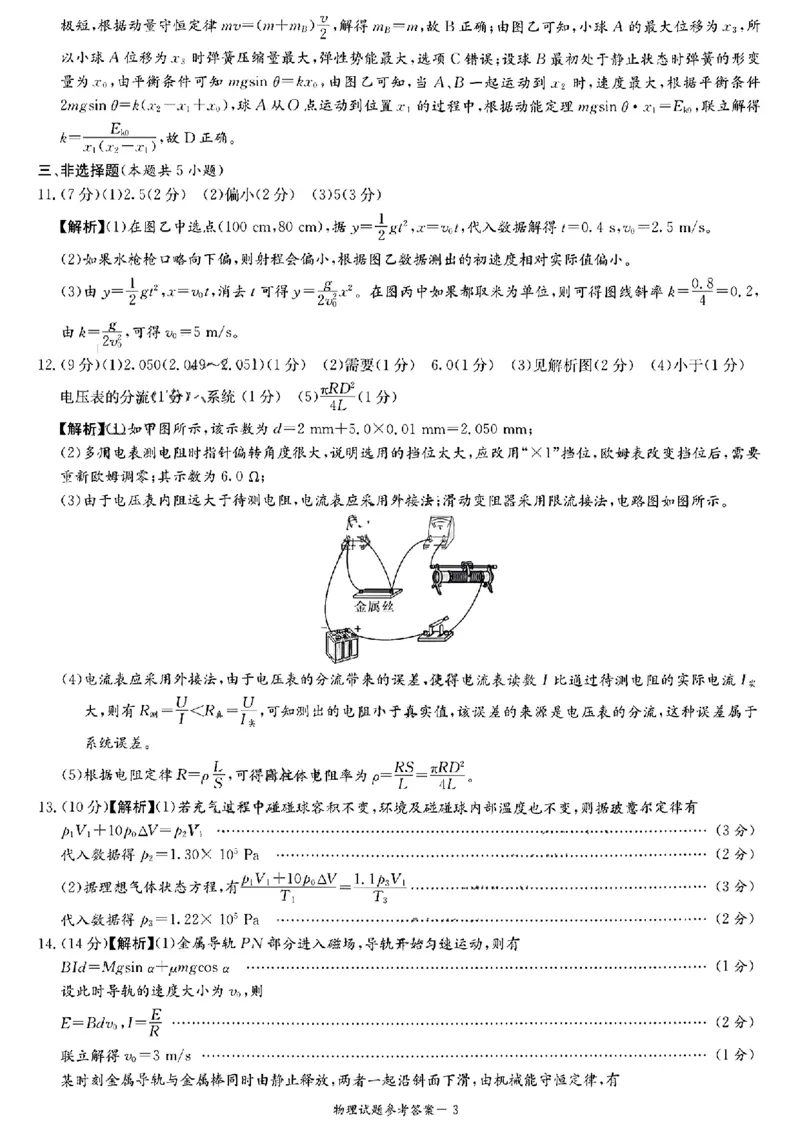 极短,根据动量守恒定律 mv=(m+m_B)v/2,解得 m_B=m,故 B 正确;由图乙可知,小球 A 的最大位移为 x₃,所
以小球 A 位移为 x₃ 时弹簧压缩量最大,弹性势能最大,选项 C 错误;设球 B 最初处于静止状态时弹簧的形变
量为 x₀,由平衡条件可知 mgsin θ=kx₀,由图乙可知,当 A、B 一起运动到 x₂ 时,速度最大,根据平衡条件
2mgsin θ=k(x₂-x₁+x₀),球 A 从 O 点运动到位置 x₁ 的过程中,根据动能定理 mgsin θ·x₁=E_k0,联立解得
k=E_k0/x₁(x₂-x₁),故 D 正确。
三、非选择题(本题共 5 小题)
11.(7 分)(1)2.5(2 分) (2)偏小(2 分) (3)5(3 分)
【解析】(1)在图乙中选点(100 cm,80 cm),据 y=1/2gt²,x=v₀t,代入数据解得 t=0.4 s,v₀=2.5 m/s。
(2)如果水枪枪口略向下偏,则射程会偏小,根据图乙数据测出的初速度相对实际值偏小。
(3)由 y=1/2gt²,x=v₀t,消去 t 可得 y=g/2v₀²x²。在图丙中如果都取米为单位,则可得图线斜率 k=0.8/4=0.2,
由 k=g/2v₀²,可得 v₀=5 m/s。
12.(9 分)(1)2.050(2.049~2.051)(1 分) (2)需要(1 分) 6.0(1 分) (3)见解析图(2 分) (4)小于(1 分)
电压表的分流(1 分) 系统(1 分) (5)πRD²/4L(1 分)
【解析】(1)如甲图所示,该示数为 d=2 mm+5.0×0.01 mm=2.050 mm;
(2)多用电表测电阻时指针偏转角度很大,说明选用的挡位太大,应改用“×1”挡位,欧姆表改变挡位后,需要
重新欧姆调零;其示数为 6.0 Ω;
(3)由于电压表内阻远大于待测电阻,电流表应采用外接法;滑动变阻器采用限流接法,电路图如图所示。
金属丝
- +
(4)电流表应采用外接法,由于电压表的分流带来的误差,使得电流表读数 I 比通过待测电阻的实际电流 I实
大,则有 R测=U/I<R真=U/I实,可知测出的电阻小于真实值,该误差的来源是电压表的分流,这种误差属于
系统误差。
(5)根据电阻定律 R=ρL/S,可得圆柱体电阻率为 ρ=RS/L=πRD²/4L。
13.(10 分)【解析】(1)若充气过程中碰碰球容积不变,环境及碰碰球内部温度也不变,则据玻意尔定律有
p₁V₁+10p₀ΔV=p₂V₁ ……(3 分)
代入数据得 p₂=1.30×10⁵ Pa ……(2 分)
(2)据理想气体状态方程,有(p₁V₁+10p₀ΔV)/T₁=1.1p₃V₁/T₃ ……(3 分)
代入数据得 p₃=1.22×10⁵ Pa ……(2 分)
14.(14 分)【解析】(1)金属导轨 PN 部分进入磁场,导轨开始匀速运动,则有
BId=Mgsin α+μmgcos α ……(1 分)
设此时导轨的速度大小为 v₀,则
E=Bdv₀,I=E/R ……(2 分)
联立解得 v₀=3 m/s ……(1 分)
某时刻金属导轨与金属棒同时由静止释放,两者一起沿斜面下滑,由机械能守恒定律,有
物理试题参考答案-3